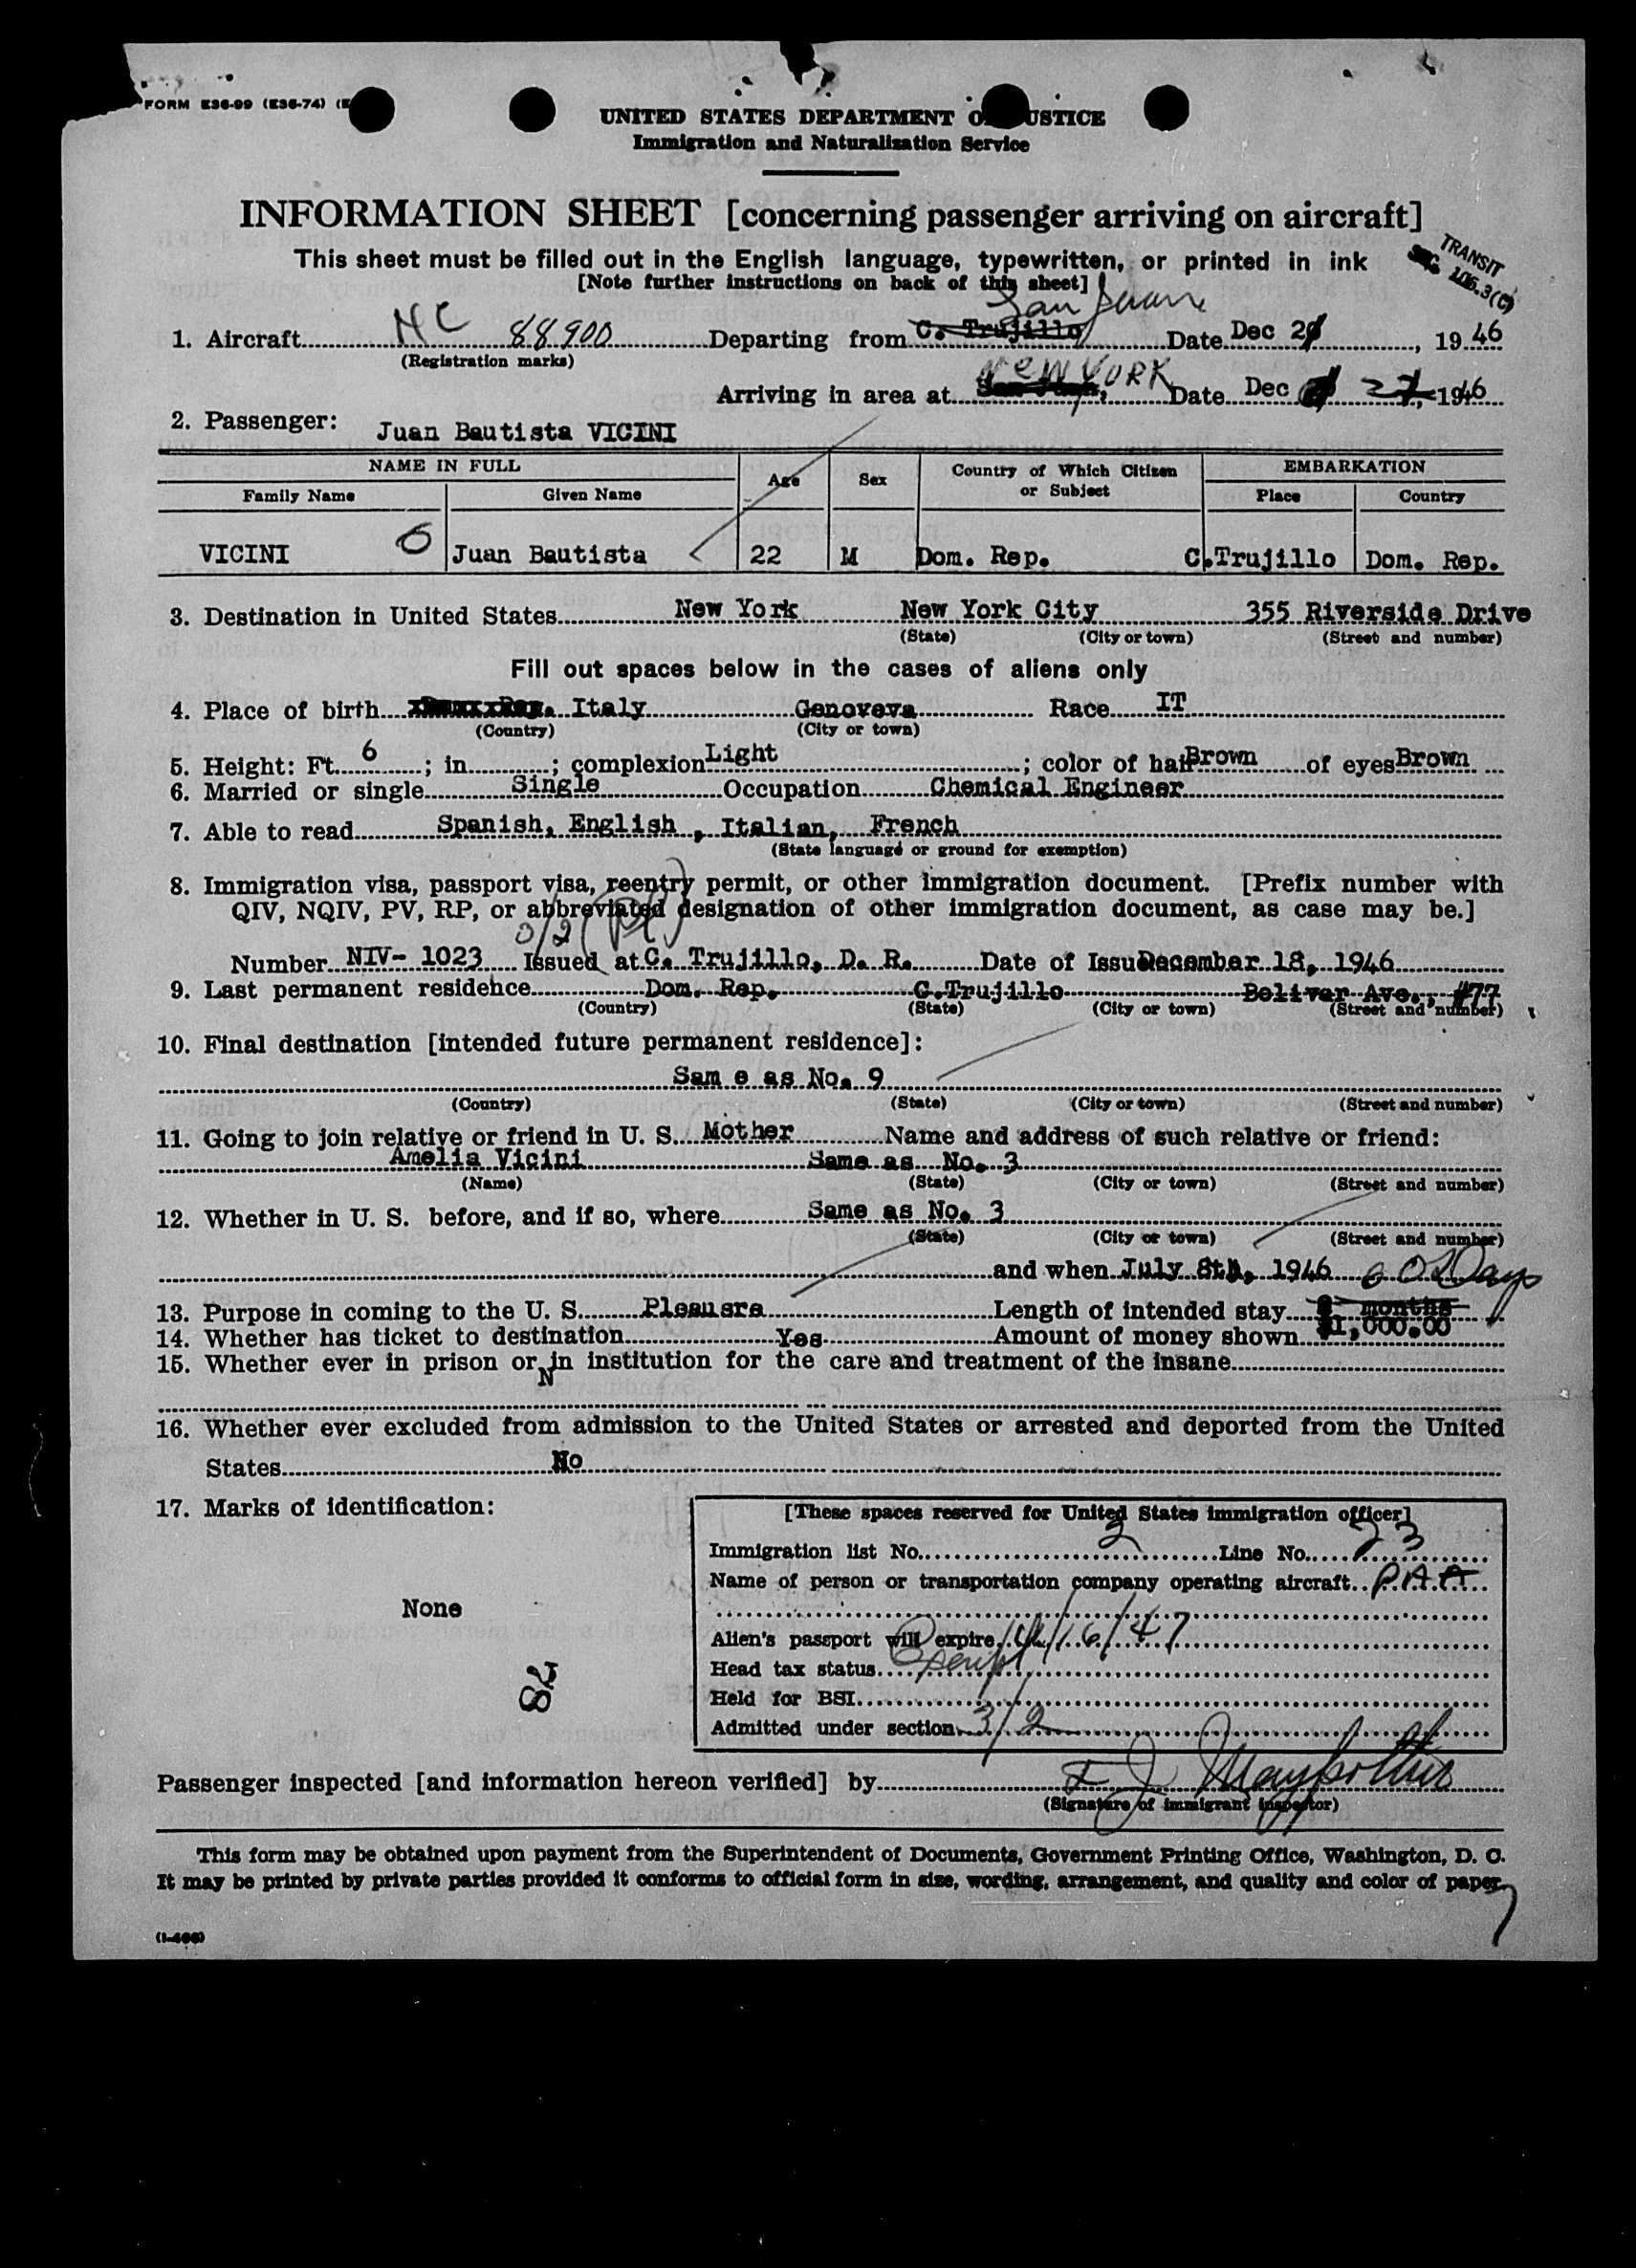 FORM E36-99 (E36-74)
UNITED STATES DEPARTMENT O USTICE
Immigration and Naturalization Service
INFORMATION SHEET [concerning passenger arriving on aircraft]
This sheet must be filled out in the English language, typewritten, or printed in ink
[Note further instructions on back of this sheet]
TRANSIT
SEC 106.3(C)
San Juan
1. Aircraft NC 88900 Departing from C. Trujillo Date Dec 2 , 19 46
(Registration marks)
New YORK
Arriving in area at San Juan, Date Dec 27, 1946
2. Passenger: Juan Bautista VICINI
NAME IN FULL Age Sex Country of Which Citizen or Subject EMBARKATION
Family Name Given Name Place Country
VICINI Juan Bautista 22 M Dom. Rep. C.Trujillo Dom. Rep.
3. Destination in United States New York New York City 355 Riverside Drive
(State) (City or town) (Street and number)
Fill out spaces below in the cases of aliens only
4. Place of birth Italy Genoveva Race IT
(Country) (City or town)
5. Height: Ft. 6 ; in. ; complexion Light ; color of hair Brown of eyes Brown
6. Married or single Single Occupation Chemical Engineer
7. Able to read Spanish, English , Italian, French
(State language or ground for exemption)
8. Immigration visa, passport visa, reentry permit, or other immigration document. [Prefix number with
QIV, NQIV, PV, RP, or abbreviated designation of other immigration document, as case may be.]
3/2
Number NIV- 1023 Issued at C. Trujillo, D. R. Date of Issue December 18, 1946
9. Last permanent residence Dom. Rep. C.Trujillo Bolivar Ave., #77
(Country) (State) (City or town) (Street and number)
10. Final destination [intended future permanent residence]:
Sam e as No. 9
(Country) (State) (City or town) (Street and number)
11. Going to join relative or friend in U. S. Mother Name and address of such relative or friend:
Amelia Vicini Same as No. 3
(Name) (State) (City or town) (Street and number)
12. Whether in U. S. before, and if so, where Same as No. 3
(State) (City or town) (Street and number)
and when July 8th, 1946 60 Days
13. Purpose in coming to the U. S. Pleausre Length of intended stay months
14. Whether has ticket to destination Yes Amount of money shown $1,000.00
15. Whether ever in prison or in institution for the care and treatment of the insane
N
16. Whether ever excluded from admission to the United States or arrested and deported from the United
States No
17. Marks of identification:
None
82
[These spaces reserved for United States immigration officer]
Immigration list No. 2 Line No. 23
Name of person or transportation company operating aircraft P.A.A
Alien's passport will expire 16/47
Head tax status Exempt
Held for BSI
Admitted under section 3/2
Passenger inspected [and information hereon verified] by
(Signature of immigrant inspector)
This form may be obtained upon payment from the Superintendent of Documents, Government Printing Office, Washington, D. C.
It may be printed by private parties provided it conforms to official form in size, wording, arrangement, and quality and color of paper.
(I-466)